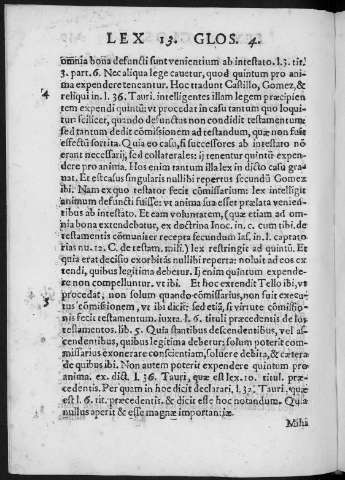 LEX 13. GLOS. 4.
omnia bona defuncti sunt venientium ab intestato. l.3. tit.
3. part. 6. Nec aliqua lege cauetur, quod quintum pro ani
4
ma expendere teneantur. Hoc tradidit Castillo, Gomez, &
reliqui in. l. 36. Tauri. intelligentes illam legem præcipien
tem expendi quintũ: vt procedat in casu tantum quo loqui
tur: scilicet, quando defunctus non condidit testamentum:
sed tantum dedit cõmisionem ad testandum, quæ non fuit
effectũ sortita. Quia eo casu, si successores ab intestato nõ
erant necessarij, sed collaterales: ij tenentur quintũ expen
dere pro anima. Hos enim tantum illa lex in dicto casu gra
uat. Et est casus singularis nullibi repertus secundũ Gomez
ibi. Nam ex quo testator fecit cõmissarium: lex intelligit
animum defuncti fuisse: vt anima sua esset prælata venien
tibus ab intestato. Et eam voluntatem, (quæ etiam ad om
nia bona extendebatur, ex doctrina Inoc. in. c. cum tibi. de
testamentis cõmuniter recepta secundum Ias. in. l. captato
rias nu. 12. C. de testam. mili.) lex restringit ad quintũ. Et
quia erat decisio exorbitãs nullibi reperta: noluit ad eos ex
tendi, quibus legitima debetur. Ij enim quintum expende
re non compelluntur. vt ibi. Et hoc extendit Tello ibi, vt
5
procedat; non solum quando cõmissarius, non fuit execu
tus cõmisionem, vt ibi dicit: sed etiã, si virtute cõmissio-
nis fecit testamentum. iuxta. l. 6. tituli præcedentis de los
testamentos. lib. 5. Quia stantibus descendentibus, vel as-
cendentibus, quibus legitima debetur: solum poterit com
missarius exonerare conscientiam, soluere debita, & cætera
de quibus ibi. Non autem poterit expendere quintum pro
anima. ex. dict. l. 36. Tauri, quæ est lex. 10. titul. præ-
cedentis. Per quam in hoc dicit declarari, l. 32. Tauri, quæ
est l. 6. tit. præcedentis. & dicit esse hoc notandum. Quia
nullus aperit & esse magnæ importantiæ.
Mihi